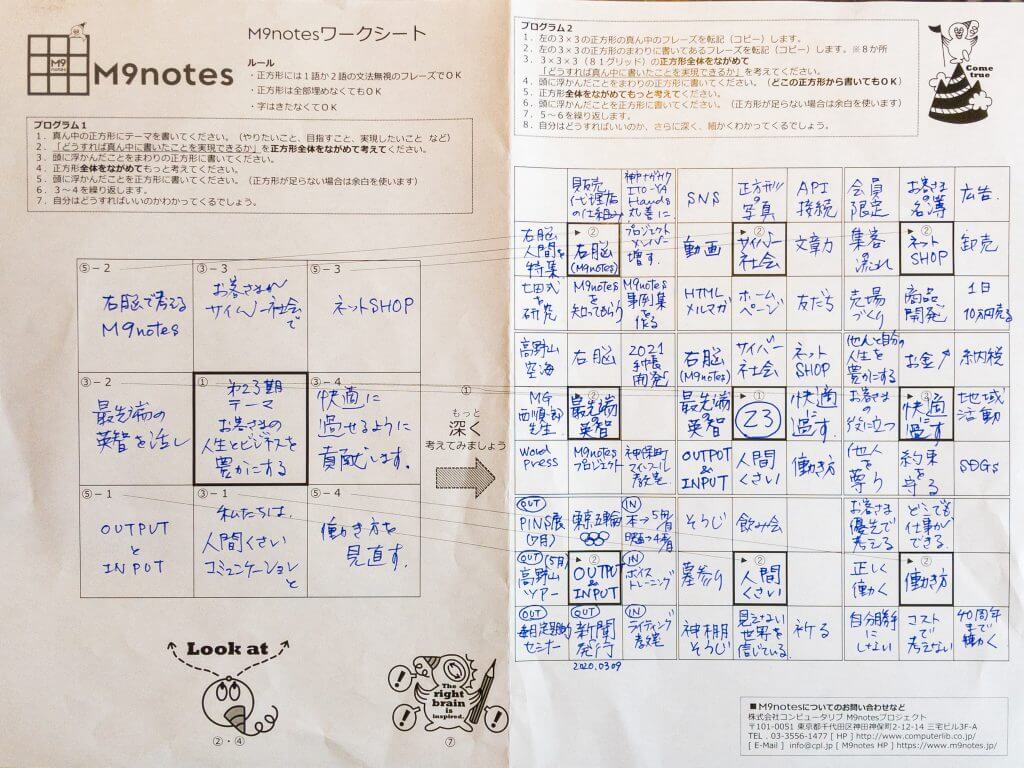 M9notesワークシート
M9
notes
M9notes
ルール
・正方形には1語か2語の文法無視のフレーズでOK
・正方形は全部埋めなくてもOK
・字はきたなくてOK
プログラム1
1．真ん中の正方形にテーマを書いてください。（やりたいこと、目指すこと、実現したいこと など）
2．「どうすれば真ん中に書いたことを実現できるか」を正方形全体をながめて考えてください。
3．頭に浮かんだことをまわりの正方形に書いてください。
4．正方形全体をながめてもっと考えてください。
5．頭に浮かんだことを正方形に書いてください。（正方形が足らない場合は余白を使います）
6．3～4を繰り返します。
7．自分はどうすればいいのかわかってくるでしょう。
⑤－2
右脳で考える
M9notes
③－3
お客さまが
サイバー社会で
⑤－3
ネットSHOP
③－2
最先端の
英智を活し
①
第23期
テーマ
お客さまの
人生とビジネスを
豊かにする
③－4
快適に
過せるように
貢献します。
⑤－1
OUTPUT
と
INPUT
③－1
私たちは、
人間くさい
コミュニケーションと
⑤－4
働き方を
見直す。
①
もっと
深く
考えてみましょう
Look at
②・④
The
right
brain
is
inspired.
⑦
プログラム2
1．左の3×3の正方形の真ん中のフレーズを転記（コピー）します。
2．左の3×3の正方形のまわりに書いてあるフレーズを転記（コピー）します。※8か所
3．3×3×3（81グリッド）の正方形全体をながめて
「どうすれば真ん中に書いたことを実現できるか」を考えてください。
4．頭に浮かんだことをまわりの正方形に書いてください。（どこの正方形から書いてもOK）
5．正方形全体をながめてもっと考えてください。
6．頭に浮かんだことを正方形に書いてください。（正方形が足らない場合は余白を使います）
7．5～6を繰り返します。
8．自分はどうすればいいのか、さらに深く、細かくわかってくるでしょう。
Come
true
販売
代理店
の仕組み
ITO-YA
Hands
丸善に
SNS
正方形の
写真
API
接続
会員
限定
お客さま
の名簿
広告
右脳
人間を
特集
②
右脳
(M9notes)
プロジェクト
メンバー
増す。
動画
②
サイバー
社会
文章力
集客
の流れ
②
ネット
SHOP
卸売
七田式を
研究
M9notes
を
知ってもらう
M9notes
事例集
を作る
HTML
メルマガ
ホーム
ページ
友だち
売場
づくり
商品
開発
1日
10万円売る
高野山
空海
右脳
2021
手帳
開発!
右脳
(M9notes)
サイバー
社会
ネット
SHOP
他人と自分の
人生を
豊かにする
お金↑
納税
MG
西順一郎
先生
②
最先端
の
英智
最先端
の
英智
①
23
快適
に
過す。
お客さま
の
役に立つ
④
快適
に
過す
地域
活動
Word
press
M9notes
プロジェクト
神保町
マイツール
教室
OUTPUT
&
INPUT
人間
くさい
働き方
他人
を
尊り
約束
を
守る
SDGs
OUT
PINS展
(7月)
東京五輪
IN
本→5冊/月
映画→4番/月
そうじ
飲み会
お客さま
優先で
考える
どこでも
仕事が
できる。
OUT
(5月)
高野山
ツアー
②
OUTPUT
&
INPUT
IN
ボイス
トレーニング
墓参り
②
人間
くさい
正しく
働く
②
働き方
OUT
毎月定期的
セミナー
OUT
新聞
発行
IN
ライティング
教室
神棚
そうじ
見えない
世界を
信じている。
祈る
自分勝手
に
しない
コスト
で
考えない
40周年
まで
働く
2020.03.09
■M9notesについてのお問い合わせなど
株式会社コンピュータリブ M9notesプロジェクト
〒101-0051 東京都千代田区神田神保町2-12-14 三宅ビル3F-A
TEL．03-3556-1477 [ HP ] http://www.computerlib.co.jp/
[ E-Mail ] info@cpl.jp [ M9notes HP ] https://www.m9notes.jp/